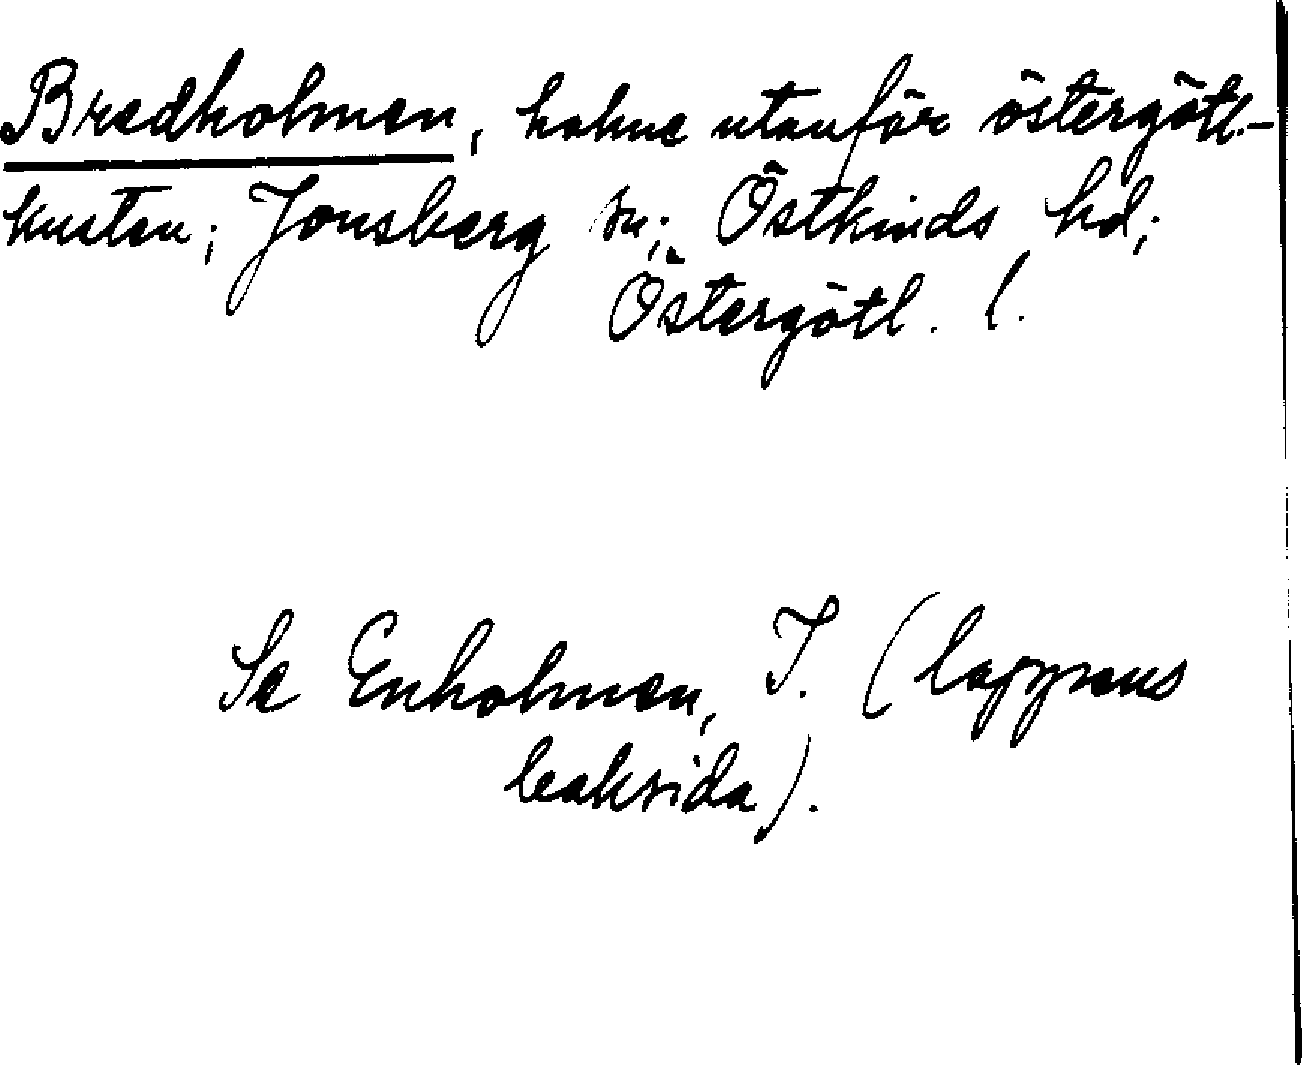 Bredholmen, holme utanför östergötl.-
kusten; Jonsberg sn; Östkinds hd;
Östergötl. l.
Se Enholmen, J. (lappens
baksida).